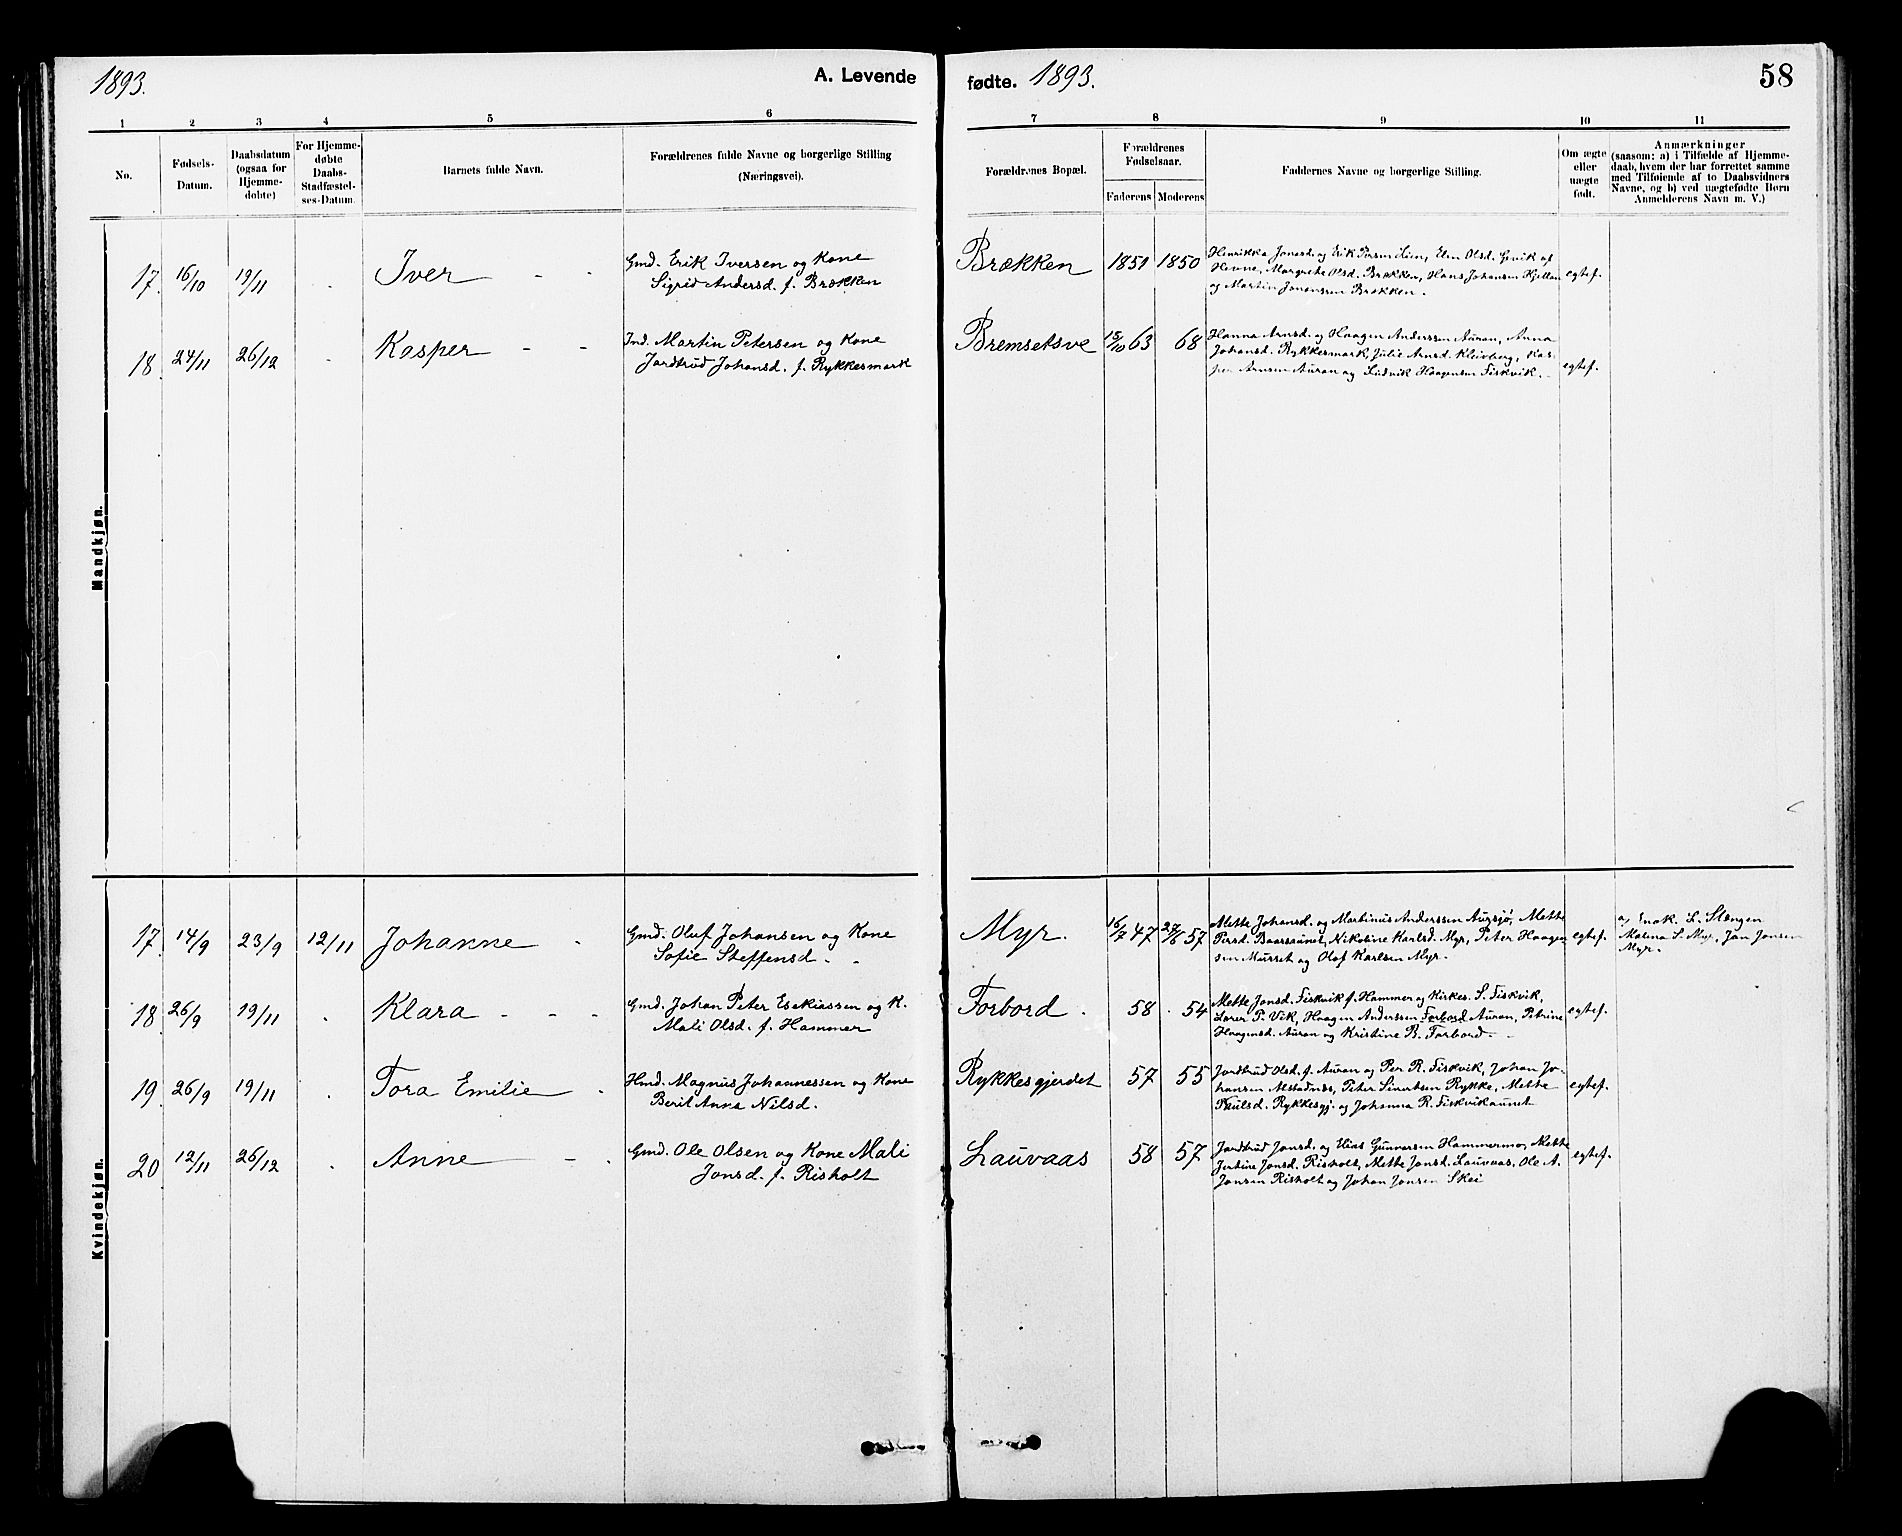 1893.
A. Levende
fødte. 1893.
58
1 2 3 4 5 6 7 8 9 10 11
No.
Fødsels-
Datum.
Daabsdatum
(ogsaa for
Hjemme-
døbte)
For Hjemme-
døbte
Daabs-
Stadfæstel-
ses-Datum.
Barnets fulde Navn.
Forældrenes fulde Navne og borgerlige Stilling
(Næringsvei).
Forældrenes Bopæl.
Forældrenes
Fødselsaar.
Faderens Moderens
Faddernes Navne og borgerlige Stilling.
Om ægte
eller
uægte
født.
Anmærkninger
(saasom: a) i Tilfælde af Hjemme-
daab, hvem der har forrettet samme
med Tilføiende af to Daabsvidners
Navne, og b) ved uægtefødte Børn
Anmelderens Navn m. V.)
Mandkjøn.
17. 16/10 19/11 Iver
Gmd. Erik Iversen og Kone
Sigrid Andersd. f. Brækken
Brækken 1851 1850
Henrikka Jonasd. og Erik Lien, Elen Olsd. Gjevik af
Hevne, Margrete Olsd. Brækken, Hans Johansen Hjellan
og Martin Jonassen Brækken.
egtef.
18. 24/11 26/12 Kasper
Ind. Martin Petersen og Kone
Jordtrud Johansd. f. Rykkesmark
Bremsetsve 15/10 63 68
Hanna Arnsd. og Haagen Anderssen Auran, Anna
Johansd. Rykkesmark, Julie Arnsd. Kleivberg, Kas-
per Arnsen Auran og Ludvik Haagensen Fiskvik.
egtef.
Kvindekjøn.
17. 14/9 23/9 12/11 Johanne
Gmd. Oluf Johansen og Kone
Sofie Steffensd.
Myr. 16/7 47 27/8 57
Mette Johansd. og Martinus Anderssen Augsjø, Mette
Persd. Baarsaunet, Nikoline Karlsd. Myr, Peter Haagen-
sen Murset og Olaf Karlsen Myr.
egtef.
a, Enok. L. Stengen
Malena S. Myr, Jan Jonsen
Myr.
18 26/9 19/11 Klara
Gmd. Johan Peter Esekiassen og K.
Mali Olsd. f. Hammer
Forbord. 58 54
Mette Jonsd. Fiskvik f. Hammer og Kirkes. S. Fiskvik,
Lærer P. Vik, Haagen Anderssen Forbord Auran, Petrine
Haagensd. Auran og Kristine B. Forbord.
egtef.
19. 26/9 19/11 Tora Emilie
Hmd. Magnus Johannessen og Kone
Berit Anna Nilsd.
Rykkesgjerdet 57 55
Jordtrud Olsd. f. Auran og Per R. Fiskvik, Johan Jo-
hansen Alstadnæs, Peter Sivertsen Rykke, Mette
Paulsd. Rykkesgj. og Johanna R. Fiskvikaunet
egtef.
20 12/11 26/12 Anne
Gmd. Ole Olsen og Kone Mali
Jonsd. f. Risholt
Lauvaas 58 57
Jordtrud Jonsd. og Elias Gunnarsen Hammermo, Mette
Jutine Jonsd. Risholt, Mette Jonsd. Lauvaas, Ole A.
Jonsen Risholt og Johan Jonsen Skei
egtef.